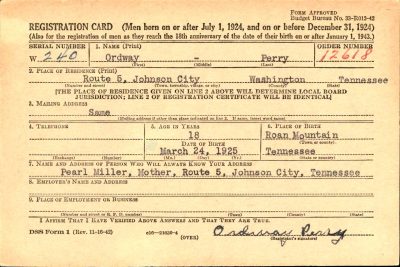 FORM APPROVED
Budget Bureau No. 33-R015-42
REGISTRATION CARD (Men born on or after July 1, 1924, and on or before December 31, 1924)
(Also for the registration of men as they reach the 18th anniversary of the date of their birth on or after January 1, 1943.)
SERIAL NUMBER 1. NAME (Print) ORDER NUMBER
W 240 Ordway - Perry 12618
(First) (Middle) (Last)
2. PLACE OF RESIDENCE (Print)
Route 5, Johnson City Washington Tennessee
(Number and street) (Town, township, village, or city) (County) (State)
[THE PLACE OF RESIDENCE GIVEN ON LINE 2 ABOVE WILL DETERMINE LOCAL BOARD
JURISDICTION; LINE 2 OF REGISTRATION CERTIFICATE WILL BE IDENTICAL]
3. MAILING ADDRESS
Same
[Mailing address if other than place indicated on line 2. If same, insert word same]
4. TELEPHONE 5. AGE IN YEARS 6. PLACE OF BIRTH
18 Roan Mountain
DATE OF BIRTH (Town or county)
March 24, 1925 Tennessee
(Exchange) (Number) (Mo.) (Day) (Yr.) (State or country)
7. NAME AND ADDRESS OF PERSON WHO WILL ALWAYS KNOW YOUR ADDRESS
Pearl Miller, Mother, Route 5, Johnson City, Tennessee
8. EMPLOYER'S NAME AND ADDRESS
9. PLACE OF EMPLOYMENT OR BUSINESS
(Number and street or R. F. D. number) (Town) (County) (State)
I AFFIRM THAT I HAVE VERIFIED ABOVE ANSWERS AND THAT THEY ARE TRUE.
DSS Form 1 (Rev. 11-16-42) (OVER) Ordway Perry
(Registrant's signature)